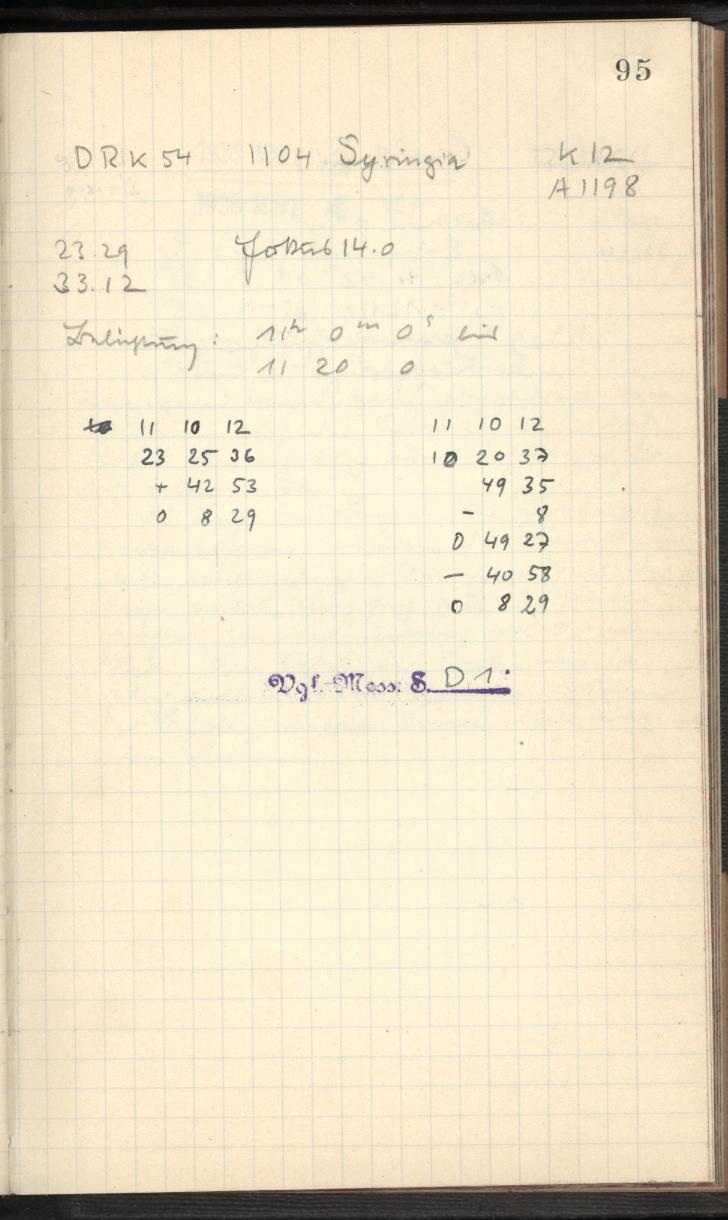 95
DRK 54 1104 Syringia K 12
A 1198
23.29 Fokus 14.0
33.12
Belichtung: 11h 0m 0s bis
11 20 0
11 10 12
23 25 36
+ 42 53
0 8 29
11 10 12
10 20 37
49 35
- 8
0 49 27
- 40 58
0 8 29
Vgl. Mess. S. D 1.